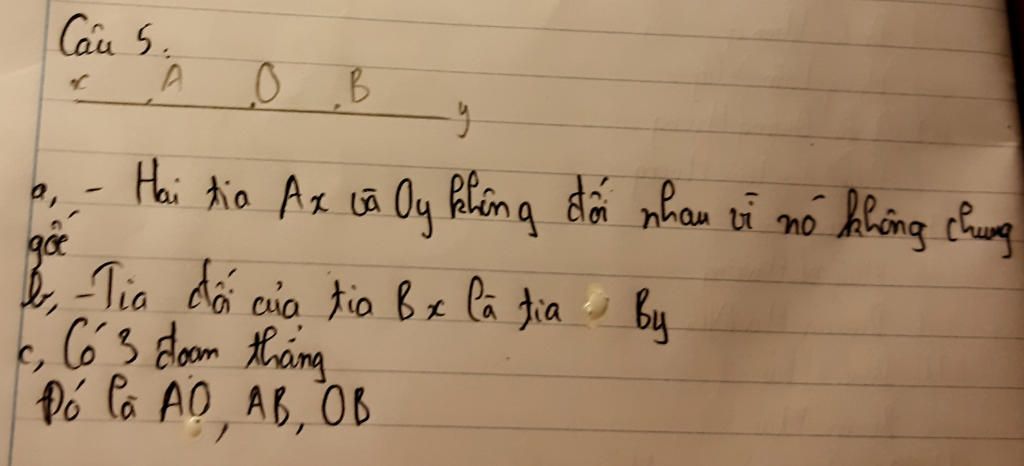 Câu 5.
x A O B y
a, - Hai tia Ax và Oy không đối nhau vì nó không chung
gốc
b, - Tia đối của tia Bx là tia By
c, Có 3 đoạn thẳng
Đó là AO, AB, OB